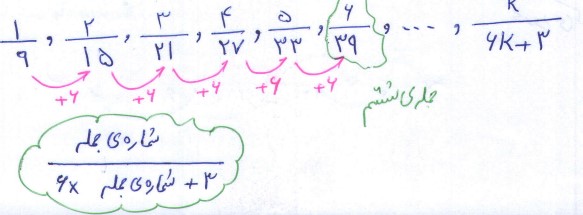 ۱/۹ , ۲/۱۵ , ۳/۲۱ , ۴/۲۷ , ۵/۳۳ , ۶/۳۹ , ... , K/۶K+۳
+۶ +۶ +۶ +۶ +۶
جمله‌ی ششم
شماره‌ی جمله
۶× شماره‌ی جمله + ۳